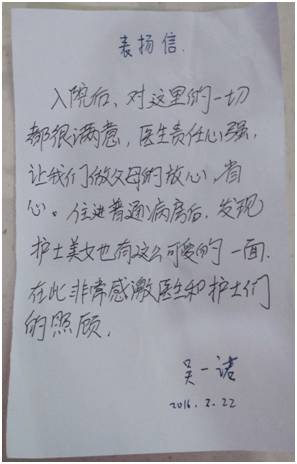 表扬信.
入院后、对这里的一切
都很满意，医生责任心强，
让我们做父母的放心，省
心。住进普通病房后，发现
护士美女也有这么可爱的一面.
在此非常感激医生和护士们
的照顾.
吴一诺
2016.2.22